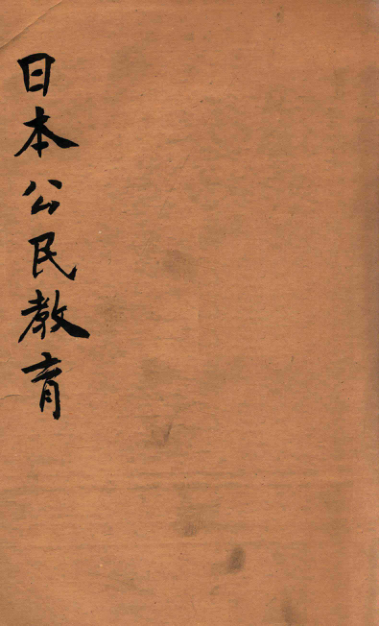 日本公民教育